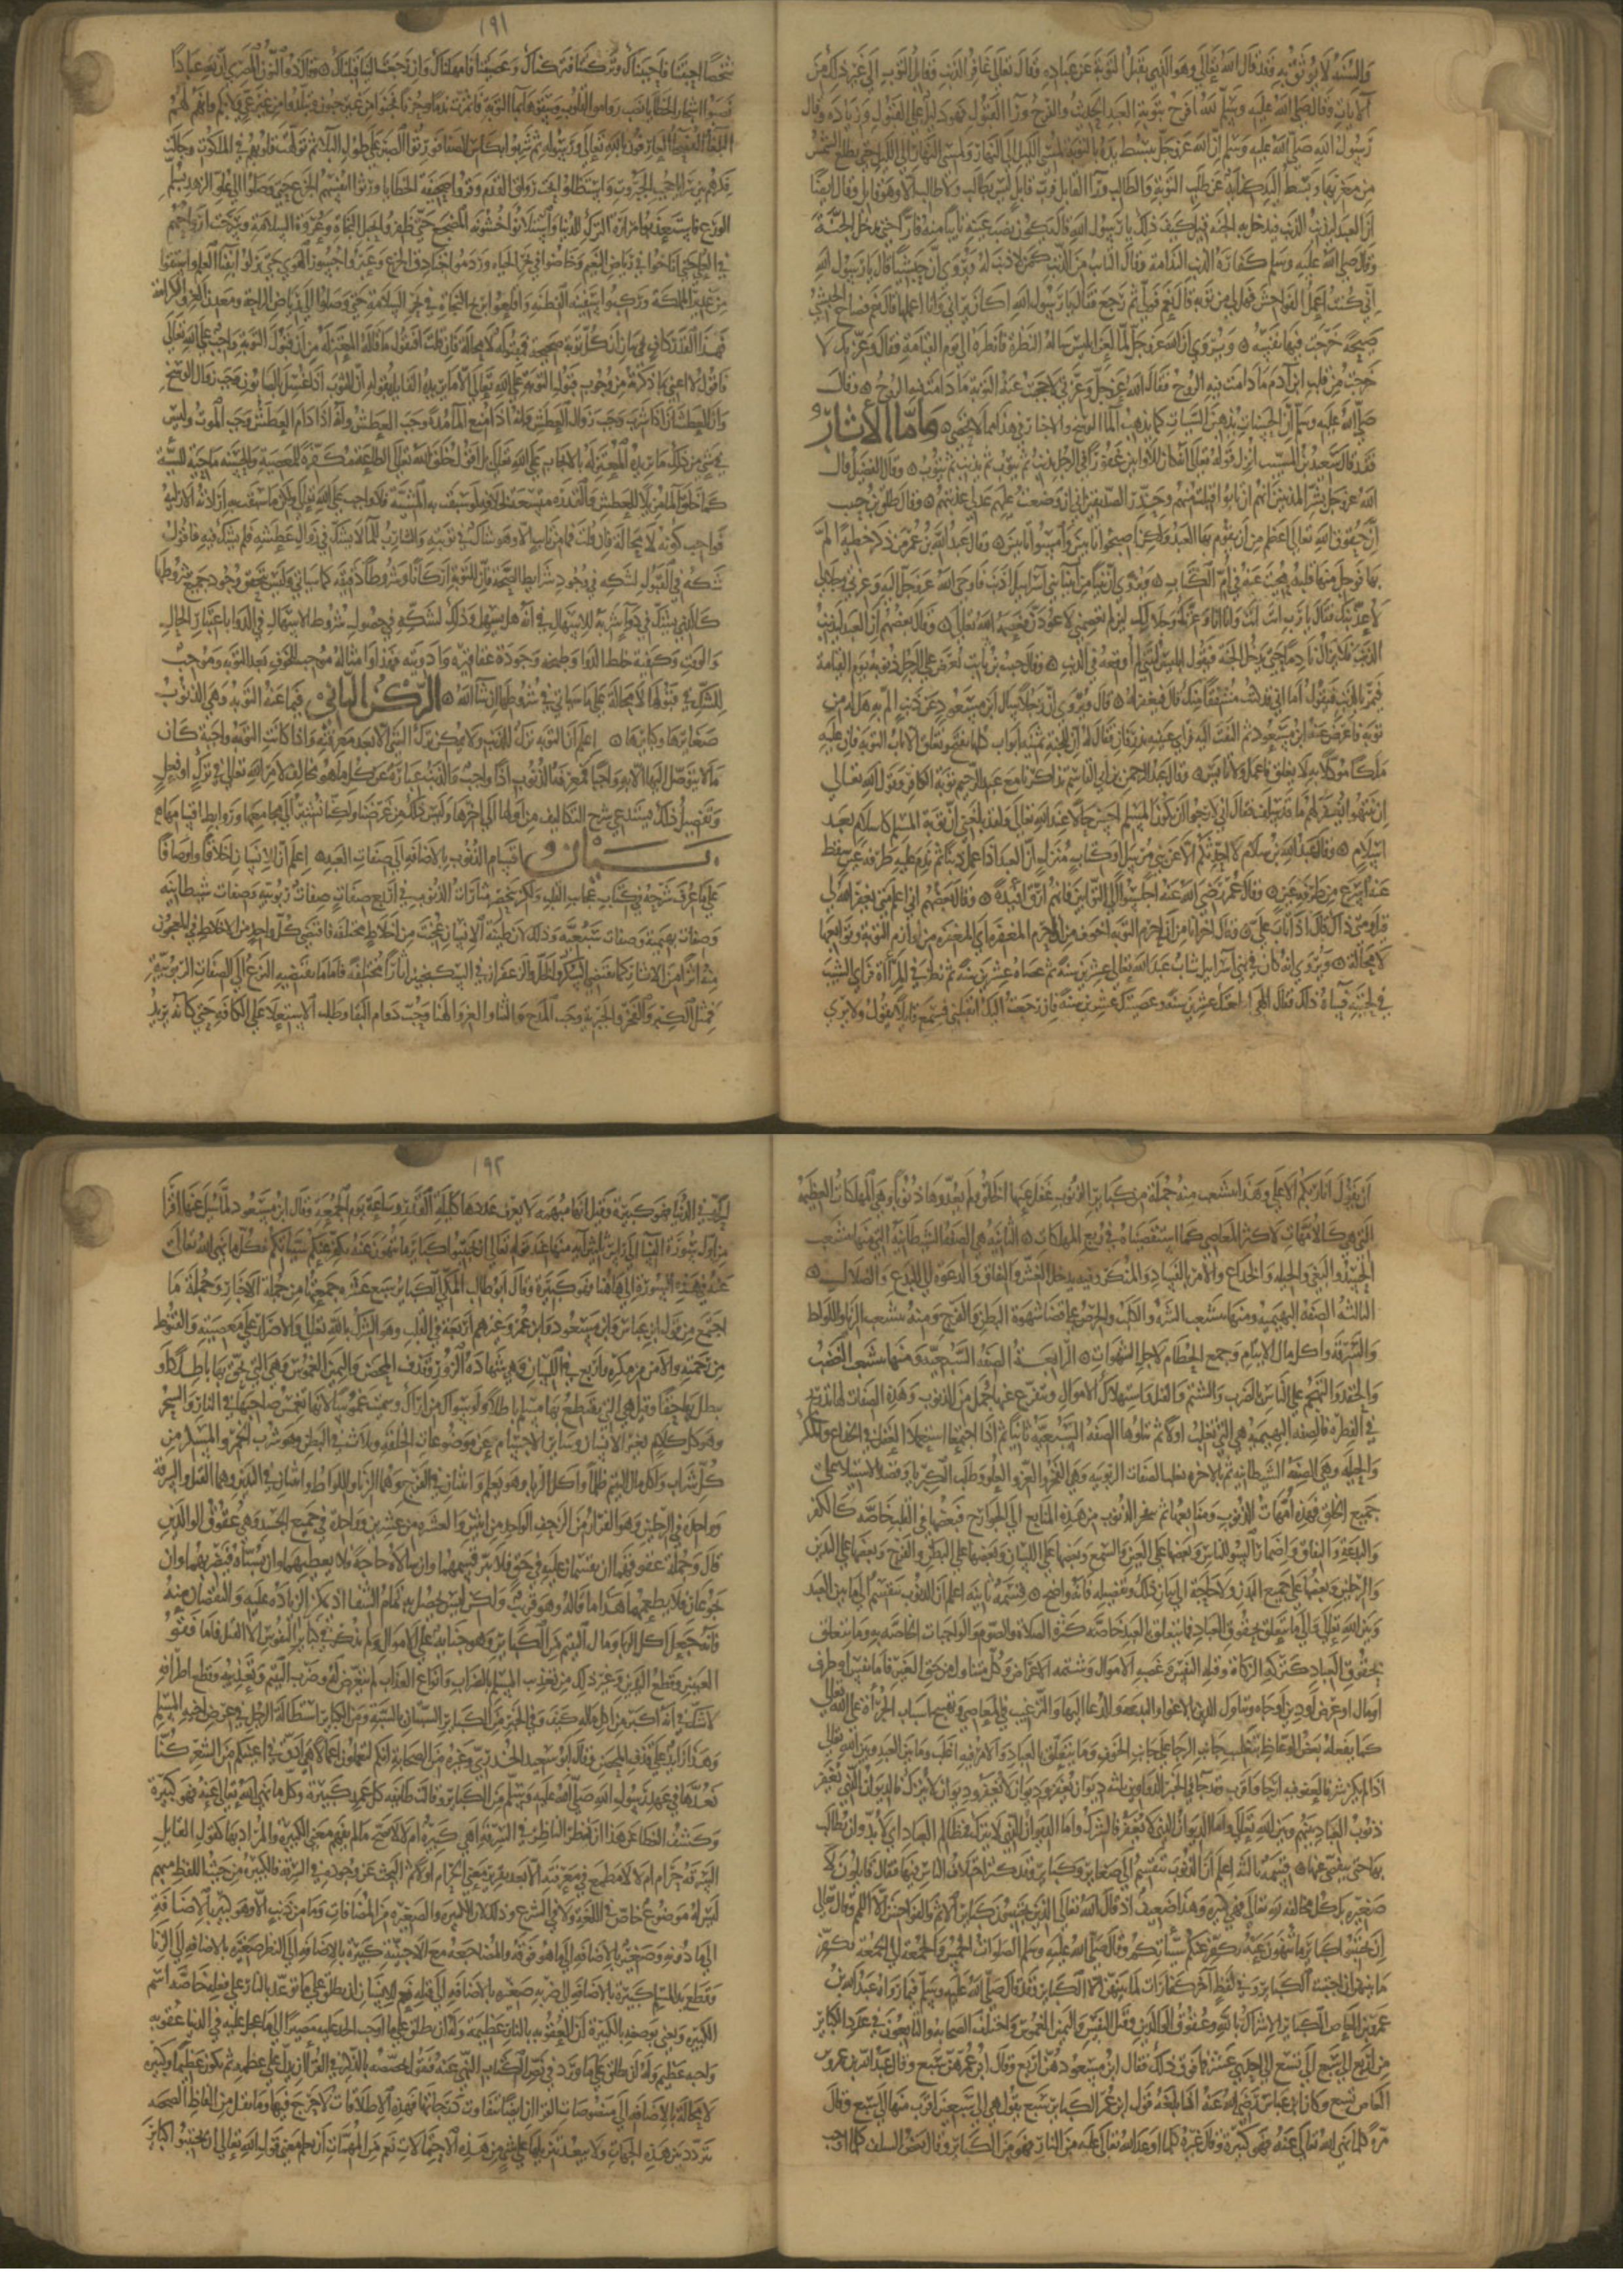 فقد قال الله تعالى وهو الذي يقبل التوبة عن عباده وقال تعالى غافر الذنب وقابل التوب الى غير ذلك من
الايات وقال صلى الله عليه وسلم لله افرح بتوبة العبد الحديث والفرح وراء القبول فهو دليل على القبول وزيادة وقال
رسول الله صلى الله عليه وسلم ان الله عز وجل يبسط يده بالتوبة لمسي الليل الى النهار ولمسي النهار الى الليل حتى تطلع الشمس
من مغربها وبسط اليد كناية عن طلب التوبة والطالب وراء القابل فرب قابل ليس بطالب ولا طالب الا وهو قابل وقال ايضا
ان العبد ليذنب الذنب فيدخل به الجنة قيل كيف ذلك يا رسول الله قال يكون نصب عينه تايبا منه فارا حتى يدخل الجنة
وقال صلى الله عليه وسلم كفارة الذنب الندامة وقال التايب من الذنب كمن لا ذنب له ويروى ان حبشيا قال يا رسول الله
اني كنت اعمل الفواحش فهل لي من توبة قال نعم فولى ثم رجع فقال يا رسول الله اكان يراني وانا اعملها قال نعم فصاح الحبشي
صيحة خرجت فيها نفسه ويروى ان الله عز وجل لما لعن ابليس ساله النظرة فانظره الى يوم القيامة فقال وعزتك لا
خرجت من قلب ابن ادم ما دامت فيه الروح فقال الله عز وجل وعزتي لا حجبت عنه التوبة ما دامت فيه الروح وقال
صلى الله عليه وسلم ان الحسنات يذهبن السيات كما يذهب الماء الوسخ والاخبار في هذا لا تحصى واما الاثار
فقد قال سعيد بن المسيب انزل قوله تعالى انه كان للاوابين غفورا في الرجل يذنب ثم يتوب ثم يذنب ثم يتوب وقال الفضيل قال
الله عز وجل بشر المذنبين انهم ان تابوا قبلت منهم وحذر الصديقين اني ان وضعت عليهم عدلي عذبتهم وقال طلق بن حبيب
ان حقوق الله تعالى اعظم من ان يقوم بها العبد ولكن اصبحوا تايبين وامسوا تايبين وقال عبد الله بن عمر من ذكر خطية الم
بها فوجل منها قلبه محيت عنه في ام الكتاب ويروى ان نبيا من انبيا بني اسراييل اذنب فاوحى الله عز وجل اليه وعزتي
فقال يا رب انت انت وانا انا وعزتك ان لم تعصمني لاعودن فعصمه الله تعالى وقال بعضهم ان العبد ليذنب
الذنب فلا يزال نادما حتى يدخل الجنة فيقول ابليس ليتني لم اوقعه في الذنب وقال حبيب بن ثابت تعرض على الرجل ذنوبه يوم القيامة
فيمر بالذنب فيقول اما اني قد كنت مشفقا منك قال فيغفر له ويروى ان رجلا سال ابن مسعود عن ذنب الم به هل له من
توبة فاعرض عنه ابن مسعود ثم التفت اليه فراى عينيه تذرفان فقال له ان للجنة ثمنية ابواب كلها تفتح وتغلق الا باب التوبة فان عليه
ملكا موكلا به لا يغلق فاعمل ولا تيأس وقال عبد الرحمن بن ابي القاسم تذاكرنا مع عبد الرحيم توبة الكافر وقول الله تعالى
ان ينتهوا يغفر لهم ما قد سلف فقال اني لارجو ان يكون المسلم احسن حالا عند الله تعالى ولقد بلغني ان توبة المسلم كاسلام بعد
اسلام وقال عبد الله بن سلام لا احدثكم الا عن نبي مرسل او كتاب منزل ان العبد اذا عمل ذنبا ثم ندم عليه طرفة عين سقط
عنه اسرع من طرفة عين وقال عمر رضي الله عنه اجلسوا الى التوابين فانهم ارق افيدة وقال بعضهم انا اعلم متى يغفر الله لي
قيل ومتى ذلك قال اذا تاب علي وقال اخر انا من ان احرم التوبة اخوف من ان احرم المغفرة اي المغفرة من لوازم التوبة وتوابعها
لا محالة ويروى انه كان في بني اسراييل شاب عبد الله تعالى عشرين سنة ثم عصاه عشرين سنة ثم نظر في المراة فراى الشيب
في لحيته فساه ذلك فقال الهي اطعتك عشرين سنة وعصيتك عشرين سنة فان رجعت اليك اتقبلني فسمع قايلا يقول ولا يرى
١٩١
شخصا احببتنا فاحببناك وتركتنا فتركناك وعصيتنا فامهلناك وان رجعت الينا قبلناك وقال ذو النون المصري ان لله عبادا
نصبوا اشجار الخطايا نصب روامق القلوب وسقوها بماء التوبة فاثمرت ندما وحزنا فجنوا من غير جنون وتبلدوا من غير عي ولا بكم وانهم لهم
البلغاء الفصحاء العارفون بالله تعالى ورسوله ثم شربوا بكاس الصفا فورثوا الصبر على طول البلاء ثم تولهت قلوبهم في الملكوت وجالت
فكرهم بين سرايا حجب الجبروت واستظلوا تحت رواق الندم وقروا صحيفة الخطايا فاورثوا انفسهم الجزع حتى وصلوا الى علو الزهد بسلم
الورع فاستعذبوا مرارة الترك للدنيا واستلانوا خشونة المضجع حتى ظفروا بحبل النجاة وعروة السلامة وسرحت ارواحهم
في العلى حتى اناخوا في رياض النعيم وخاضوا في بحر الحياء وردموا خنادق الجزع وعبروا جسور الهوى حتى نزلوا بفناء العلم واستقوا
من غدير الحكمة وركبوا سفينة الفطنة واقلعوا بريح النجاة في بحر السلامة حتى وصلوا الى رياض الراحة ومعدن العز والكرامة
فهذا القدر كاف في بيان ان كل توبة صحيحة فمقبولة لا محالة فان قلت افتقول ما قالته المعتزلة من ان قبول التوبة واجب على الله تعالى
فاقول لا اعني بما ذكرته من وجوب قبول التوبة على الله تعالى الا ما يريده القايل بقوله ان الثوب اذا غسل بالصابون وجب زوال الوسخ
وان العطشان اذا شرب وجب زوال العطش وانه اذا منع الماء مدة وجب العطش وانه اذا دام العطش وجب الموت وليس
في شي من ذلك ما يريده المعتزلة بالايجاب على الله تعالى بل اقول خلق الله تعالى الطاعة مكفرة للمعصية والحسنة ماحية للسية
كما خلق الماء مزيلا للعطش والقدرة متسعة بخلافه لو سبقت به المشية فلا واجب على الله تعالى ولكن ما سبقت به ارادته الازلية
فواجب كونه لا محالة فان قلت فما من تايب الا وهو شاك في توبته والشارب للماء لا يشك في زوال عطشه فلم يشك فيه فاقول
شكه في القبول لشكه في وجود شرايط الصحة فان للتوبة اركانا وشروطا دقيقة كما سياتي وليس يتحقق وجود جميع شروطها
كالذي يشك في دواء شربه للاسهال في انه هل يسهل وذلك لشكه في حصول شروط الاسهال في الدواء باعتبار الحال
والوقت وكيفية خلط الدواء وطبخه وجودة عقاقيره وادويته فهذا وامثاله موجب للخوف بعد التوبة وموجب
للشك في قبولها لا محالة على ما سياتي في شروطها ان شاء الله الركن الثاني فيما عنه التوبة وهي الذنوب
صغايرها وكبايرها اعلم ان التوبة ترك الذنب ولا يمكن ترك الشي الا بعد معرفته واذا كانت التوبة واجبة كان
ما لا يتوصل اليها الا به واجبا فمعرفة الذنوب اذا واجب والذنب عبارة عن كل ما هو مخالف لامر الله تعالى في ترك او فعل
وتفصيل ذلك يستدعي شرح التكاليف من اولها الى اخرها وليس ذلك من غرضنا ولكنا نشير الى مجامعها وروابط اقسامها
بيان اقسام الذنوب بالاضافة الى صفات العبد اعلم ان للانسان اخلاقا واوصافا
على ما عرف شرحه في كتاب عجايب القلب ولكن تنحصر مثارات الذنوب في اربع صفات صفات ربوبية وصفات شيطانية
وصفات بهيمية وصفات سبعية وذلك لان طينة الانسان عجنت من اخلاط مختلفة فاقتضى كل واحد من الاخلاط في المعجون
منه اثرا من الاثار كما يقتضي السكر والخل والزعفران في السكنجبين اثارا مختلفة فاما ما يقتضيه النزوع الى الصفات الربوبية
فمثل الكبر والفخر والجبرية وحب المدح والثناء والعز والغنا وحب دوام البقاء وطلب الاستعلاء على الكافة حتى كانه يريد
ان يقول انا ربكم الاعلى وهذا يتشعب منه جملة من كباير الذنوب غفل عنها الخلق ولم يعدوها ذنوبا وهي المهلكات العظيمة
التي هي كالامهات لاكثر المعاصي كما استقصيناه في ربع المهلكات الثانية هي الصفة الشيطانية التي منها يتشعب
الحسد والبغي والحيلة والخداع والامر بالفساد والمنكر وفيه يدخل الغش والنفاق والدعوة الى البدع والضلال
الثالثة الصفة البهيمية ومنها يتشعب الشره والكلب والحرص على قضاء شهوة البطن والفرج ومنه يتشعب الزنا واللواط
والسرقة واكل مال الايتام وجمع الحطام لاجل الشهوات الرابعة الصفة السبعية ومنها يتشعب الغضب
والحقد والتهجم على الناس بالضرب والشتم والقتل واستهلاك الاموال ويتفرع عنها جمل من الذنوب وهذه الصفات لها تدريج
في الفطرة فالصفة البهيمية هي التي تغلب اولا ثم تتلوها الصفة السبعية ثانيا ثم اذا اجتمعا استعملا العقل في الخداع والمكر
والحيلة وهي الصفة الشيطانية ثم بالاخرة تغلب الصفات الربوبية وهي الفخر والعز والعلو وطلب الكبريا وقصد الاستيلاء على
جميع الخلق فهذه امهات الذنوب ومنابعها ثم تتفجر الذنوب من هذه المنابع الى الجوارح فبعضها في القلب خاصة كالكفر
والبدعة والنفاق واضمار السوء للناس وبعضها على العين والسمع وبعضها على اللسان وبعضها على البطن والفرج وبعضها على اليدين
والرجلين وبعضها على جميع البدن ولا حاجة الى بيان ذلك وتفصيله فانه واضح قسمة ثانية اعلم ان الذنوب تنقسم الى ما بين العبد
وبين الله تعالى والى ما يتعلق بحقوق العباد فما يتعلق بالعبد خاصة كترك الصلاة والصوم والواجبات الخاصة به وما يتعلق
بحقوق العباد كتركه الزكاة وقتله النفس وغصبه الاموال وشتمه الاعراض وكل متناول من حق الغير فاما نفس او طرف
او مال او عرض او دين او جاه وتناول الدين بالاغواء والدعاء الى البدعة والترغيب في المعاصي وتهييج اسباب الجرأة على الله تعالى
كما يفعله بعض الوعاظ بتغليب جانب الرجاء على جانب الخوف وما يتعلق بالعباد فالامر فيه اغلظ وما بين العبد وبين الله تعالى
اذا لم يكن شركا فالعفو فيه ارجا واقرب وقد جا في الخبر الدواوين ثلثة ديوان يغفر وديوان لا يغفر وديوان لا يترك فالديوان الذي يغفر
ذنوب العباد بينهم وبين الله تعالى واما الديوان الذي لا يغفر فالشرك واما الديوان الذي لا يترك فمظالم العباد اي لا بد وان يطالب
بها حتى يعفى عنها قسمة ثالثة اعلم ان الذنوب تنقسم الى صغاير وكباير وقد كثر اختلاف الناس فيها فقال قايلون لا
صغيرة بل كل مخالفة لله تعالى فهي كبيرة وهذا ضعيف اذ قال الله تعالى الذين يجتنبون كباير الاثم والفواحش الا اللمم وقال تعالى
ان تجتنبوا كباير ما تنهون عنه نكفر عنكم سياتكم وقال صلى الله عليه وسلم الصلوات الخمس والجمعة الى الجمعة تكفر
ما بينهن ان اجتنبت الكباير وفي لفظ اخر كفارات لما بينهن الا الكباير وقد قال صلى الله عليه وسلم فيما رواه عبد الله بن
عمرو بن العاص الكباير الاشراك بالله وعقوق الوالدين وقتل النفس واليمين الغموس واختلف الصحابة والتابعون في عدد الكباير
من اربع الى سبع الى تسع الى احدى عشرة فما فوق ذلك فقال ابن مسعود هن اربع وقال ابن عمر هن سبع وقال عبد الله بن عمرو بن
العاص تسع وكان ابن عباس رضي الله عنه اذا بلغه قول ابن عمر الكباير سبع يقول هي الى سبعين اقرب منها الى سبع وقال
مرة كلما نهى الله تعالى عنه فهو كبيرة وقال غيره كلما اوعد الله تعالى عليه من النار فهو من الكباير وقال بعض السلف كلما اوجب
١٩٢
في الدنيا فهو كبيرة وقيل انها مبهمة لا يعرف عددها كليلة القدر وساعة يوم الجمعة وقال ابن مسعود لما سيل عنها اقرا
من اول سورة النسا الى راس ثلثين اية منها عند قوله تعالى ان تجتنبوا كباير ما تنهون عنه نكفر عنكم سياتكم فكل ما نهى الله تعالى
عنه في هذه السورة الى هاهنا فهو كبيرة وقال ابو طالب المكي الكباير سبع عشرة جمعتها من جملة الاخبار وجملة ما
اجتمع من قول ابن عباس وابن مسعود وابن عمر وغيرهم اربعة في القلب وهو الشرك بالله تعالى والاصرار على معصيته والقنوط
من رحمته والامن من مكره واربع في اللسان وهي شهادة الزور وقذف المحصن واليمين الغموس وهي التي يحق بها باطلا او
يبطل بها حقا وقيل هي التي يقتطع بها مال مسلم باطلا ولو سواكا من اراك وسميت غموسا لانها تغمس صاحبها في النار والسحر
وهو كل كلام يغير الانسان وساير الاجسام عن موضوعات الخلقة وثلاث في البطن وهو شرب الخمر والمسكر من
كل شراب واكل مال اليتيم ظلما واكل الربا وهو يعلم واثنتان في الفرج وهما الزنا واللواط واثنتان في اليدين وهما القتل والسرقة
وواحدة في الرجلين وهو الفرار من الزحف الواحد من اثنين والعشرة من عشرين وواحدة في جميع الجسد وهي عقوق الوالدين
قال وجملة عقوقهما ان يقسما عليه في حق فلا يبر قسمهما وان سالاه حاجة فلا يعطيهما وان يسباه فيضربهما وان
يجوعا فلا يطعمهما هذا ما قاله وهو قريب ولكن ليس يحصل به تمام الشفا اذ يمكن الزيادة عليه والنقصان منه
فانه جعل اكل الربا ومال اليتيم من الكباير وهو جناية على الاموال ولم يذكر في كباير النفوس الا القتل فاما فقؤ
العين وقطع اليدين وغير ذلك من تعذيب المسلم بالضرب وانواع العذاب فلم يتعرض له وضرب اليتيم وتعذيبه وقطع اطرافه
لا شك في انه اكبر من اكل ماله كيف وفي الخبر من الكباير السبتان بالسبة ومن الكباير استطالة الرجل في عرض اخيه المسلم
وهذا زايد على قذف المحصن وقال ابو سعيد الخدري وغيره من الصحابة انكم لتعملون اعمالا هي ادق في اعينكم من الشعر كنا
نعدها في عهد رسول الله صلى الله عليه وسلم من الكباير وقالت طايفة كل عمد كبيرة وكل ما نهى الله تعالى عنه فهو كبيرة
وكشف الغطا عن هذا ان نظر الناظر في السرقة اهي كبيرة ام لا لا يصح ما لم يفهم معنى الكبيرة والمراد بها كقول القايل
السرقة حرام ام لا لا مطمع في معرفته الا بعد تقرير معنى الحرام اولا ثم البحث عن وجوده في السرقة فالكبيرة من حيث اللفظ مبهم
ليس له موضوع خاص في اللغة ولا في الشرع وذلك لان الكبيرة والصغيرة من المضافات وما من ذنب الا وهو كبير بالاضافة
الى ما دونه وصغير بالاضافة الى ما هو فوقه والمضاجعة مع الاجنبية كبيرة بالاضافة الى النظر صغيرة بالاضافة الى الزنا
وقطع يد المسلم كبيرة بالاضافة الى ضربه صغيرة بالاضافة الى قتله نعم للانسان ان يطلق على ما توعد بالنار على فعله خاصة اسم
الكبيرة ونعني بوصفه بالكبيرة ان العقوبة بالنار عظيمة وله ان يطلق على ما اوجب الحد عليه مصيرا الى ما عجل عليه في الدنيا عقوبة
واجبة عظيم وله ان يطلق على ما ورد في نص الكتاب النهي عنه فيقول تخصيصه بالذكر في القران يدل على عظمه ثم يكون عظيما وكبيرة
لا محالة بالاضافة اذ منصوصات القران ايضا تتفاوت درجاتها فهذه الاطلاقات لا حرج فيها وما نقل من الفاظ الصحابة
يتردد بين هذه الجهات ولا يبعد تنزيلها على شي من هذه الاحتمالات نعم من المهمات ان تعلم معنى قول الله تعالى ان تجتنبوا كباير